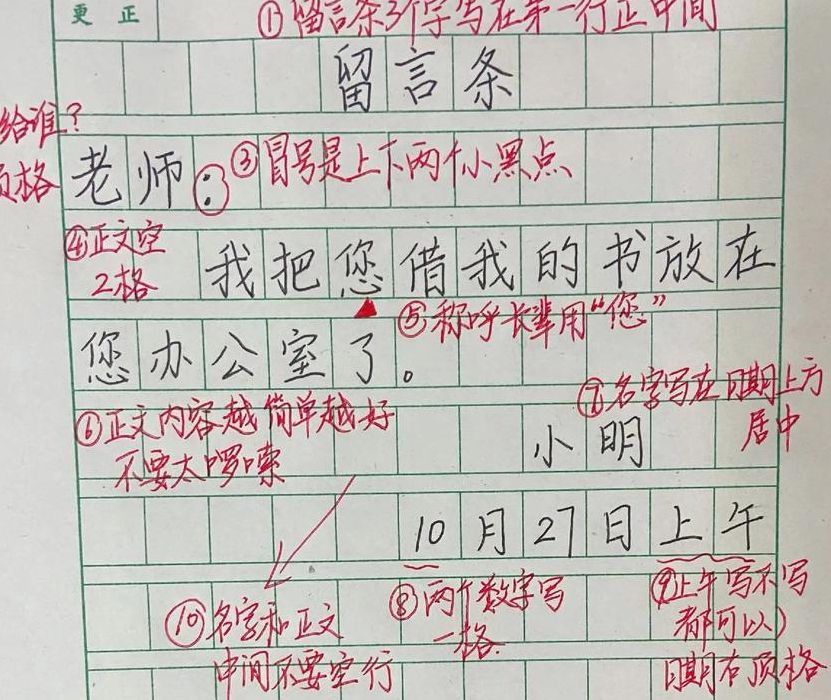 更正
①留言条3个字写在第一行正中间
留言条
给谁?
顶格
老师:
③冒号是上下两个小黑点
④正文空
2格
我把您借我的书放在
⑤称呼长辈用“您”
您办公室了。
⑥正文内容越简单越好
不要太啰嗦
⑦名字写在日期上方
居中
小明
10月27日上午
⑩名字和正文
中间不要空行
⑧两个数字写
一格
⑨上午写不写
都可以)
日期右顶格